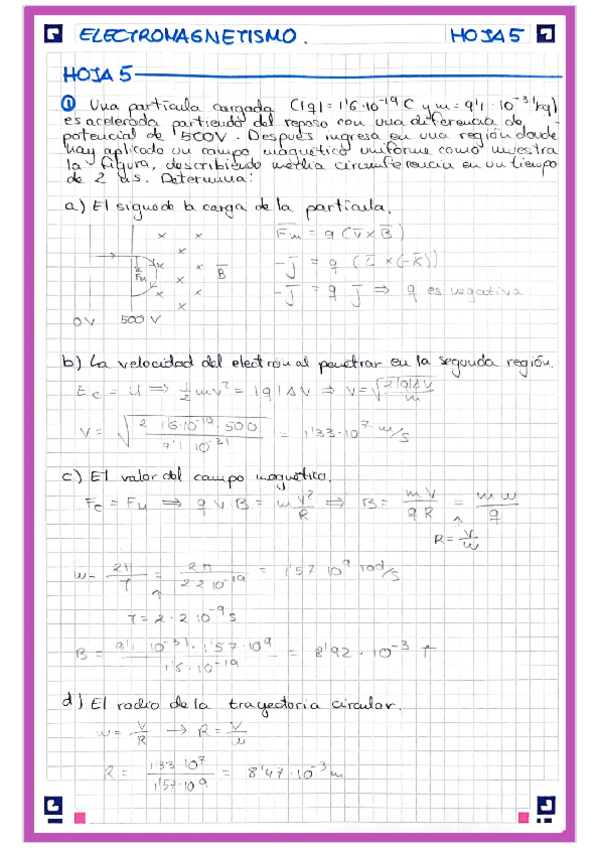 ELECTROMAGNETISMO. HOJA 5
HOJA 5
① Una partícula cargada (|q| = 1'6·10⁻¹⁹ C y m = 9'1·10⁻³¹ kg)
es acelerada partiendo del reposo con una diferencia de
potencial de 500V. Después ingresa en una región donde
hay aplicado un campo magnético uniforme como muestra
la figura, describiendo media circunferencia en un tiempo
de 2 ns. Determina:
a) El signo de la carga de la partícula.
F̅m = q (v̅ x B̅)
-j̅ = q (i̅ x (-k̅))
-j̅ = q j̅ ⇒ q es negativa
x x
x
x x
x
x x
x
B̅
F̅m
0 V 500 V
b) La velocidad del electrón al penetrar en la segunda región.
Ec = U ⇒ ½ mv² = |q| ΔV ⇒ v = √(2|q|ΔV / m)
V = √(2 · 1'6·10⁻¹⁹ · 500 / 9'1 · 10⁻³¹) = 1'33·10⁷ m/s
c) El valor del campo magnético.
Fc = Fm ⇒ q v B = m v²/R ⇒ B = mv/qR = mw/q
R = v/w
w = 2π/T = 2π/2·2·10⁻¹⁹ = 1'57 10⁹ rad/s
T = 2 · 2·10⁻⁹ s
B = 9'1 · 10⁻³¹ · 1'57 · 10⁹ / 1'6 · 10⁻¹⁹ = 8'92 · 10⁻³ T
d) El radio de la trayectoria circular.
w = v/R → R = v/w
R = 1'33·10⁷ / 1'57·10⁹ = 8'47·10⁻³ m